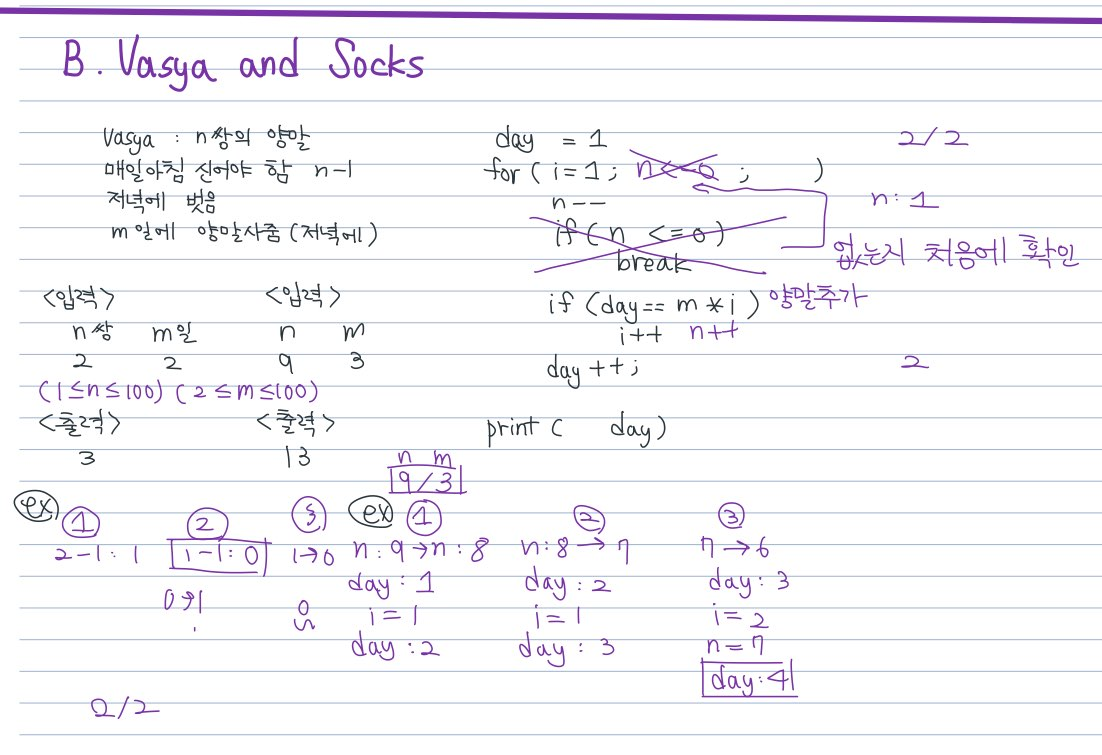 B. Vasya and Socks
Vasya : n쌍의 양말
매일아침 신어야 함 n-1
저녁에 벗음
m일에 양말사줌(저녁에)
<입력>
n쌍 m일
2 2
(1≤n≤100) (2≤m≤100)
<출력>
3
<입력>
n m
9 3
<출력>
13
day = 1
for ( i=1; n<=0 ; )
n--
if ( n <=0)
break
if (day== m*i) 양말추가
i++ n++
day ++;
print ( day)
2/2
n: 1
없는지 처음에 확인
2
ex
① ② ③
2-1: 1 1-1: 0 1→0
0→1
n m
9/3
ex
① ② ③
n: 9→n: 8 n: 8→7 7→6
day: 1 day: 2 day: 3
i=1 i=1 i=2
day: 2 day: 3 n=7
day: 4
2/2